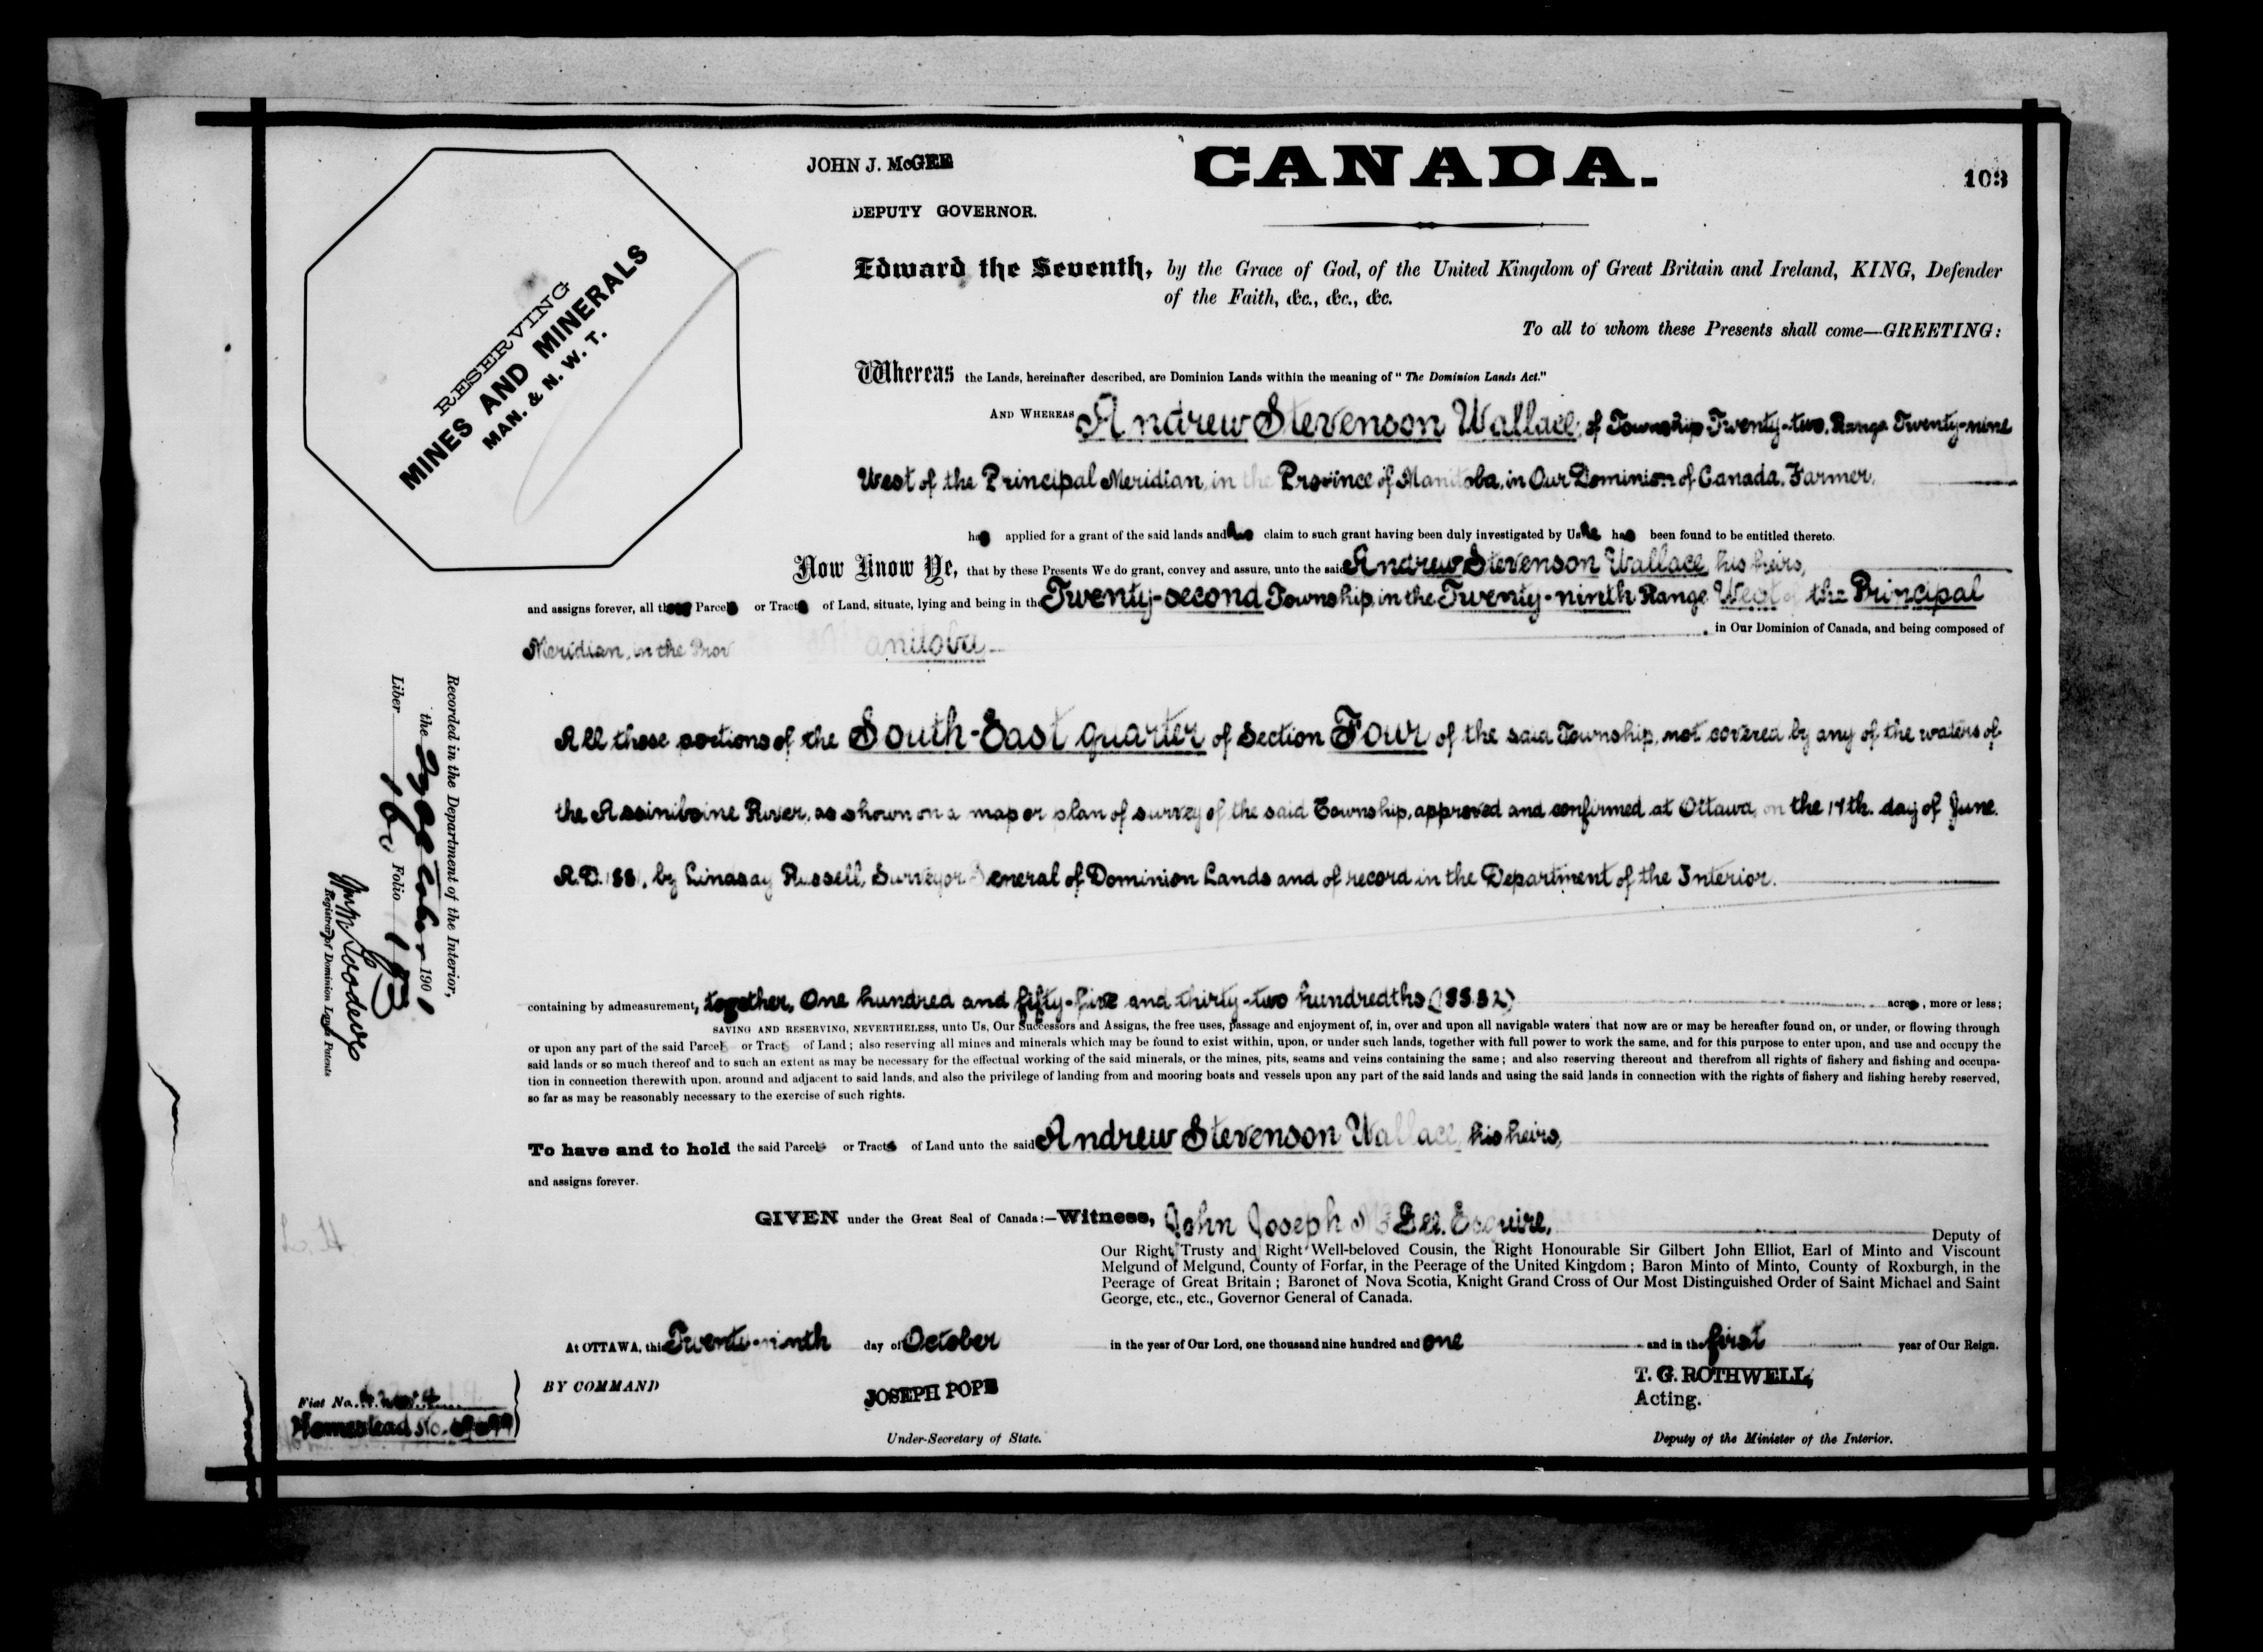 JOHN J. McGEE
CANADA.
103
DEPUTY GOVERNOR.
RESERVING
MINES AND MINERALS
MAN. & N. W. T.
Edward the Seventh, by the Grace of God, of the United Kingdom of Great Britain and Ireland, KING, Defender
of the Faith, &c., &c., &c.
To all to whom these Presents shall come—GREETING:
Whereas the Lands, hereinafter described, are Dominion Lands within the meaning of "The Dominion Lands Act."
AND WHEREAS Andrew Stevenson Wallace, of Township Twenty-two, Range Twenty-nine
West of the Principal Meridian, in the Province of Manitoba, in Our Dominion of Canada, Farmer,
has applied for a grant of the said lands and his claim to such grant having been duly investigated by Us he has been found to be entitled thereto.
Now Know Ye, that by these Presents We do grant, convey and assure, unto the said Andrew Stevenson Wallace, his heirs,
and assigns forever, all those Parcels or Tracts of Land, situate, lying and being in the Twenty-second Township, in the Twenty-ninth Range West of the Principal
Meridian, in the Prov anitoba
in Our Dominion of Canada, and being composed of
All those portions of the South-East quarter of Section Four of the said Township, not covered by any of the waters of
the Assiniboine River, as shown on a map or plan of survey of the said Township, approved and confirmed at Ottawa, on the 17th. day of June.
A.D. 1881, by Lindsay Russell, Surveyor General of Dominion Lands and of record in the Department of the Interior.
containing by admeasurement, together, One hundred and fifty-five and thirty-two hundredths (155.32) acres, more or less;
SAVING AND RESERVING, NEVERTHELESS, unto Us, Our Successors and Assigns, the free uses, passage and enjoyment of, in, over and upon all navigable waters that now are or may be hereafter found on, or under, or flowing through
or upon any part of the said Parcels or Tracts of Land; also reserving all mines and minerals which may be found to exist within, upon, or under such lands, together with full power to work the same, and for this purpose to enter upon, and use and occupy the
said lands or so much thereof and to such an extent as may be necessary for the effectual working of the said minerals, or the mines, pits, seams and veins containing the same; and also reserving thereout and therefrom all rights of fishery and fishing and occupa-
tion in connection therewith upon, around and adjacent to said lands, and also the privilege of landing from and mooring boats and vessels upon any part of the said lands and using the said lands in connection with the rights of fishery and fishing hereby reserved,
so far as may be reasonably necessary to the exercise of such rights.
To have and to hold the said Parcels or Tracts of Land unto the said Andrew Stevenson Wallace, his heirs,
and assigns forever.
GIVEN under the Great Seal of Canada:—Witness, John Joseph McGee, Esquire,
Deputy of
Our Right Trusty and Right Well-beloved Cousin, the Right Honourable Sir Gilbert John Elliot, Earl of Minto and Viscount
Melgund of Melgund, County of Forfar, in the Peerage of the United Kingdom; Baron Minto of Minto, County of Roxburgh, in the
Peerage of Great Britain; Baronet of Nova Scotia, Knight Grand Cross of Our Most Distinguished Order of Saint Michael and Saint
George, etc., etc., Governor General of Canada.
At OTTAWA, this Twenty-ninth day of October in the year of Our Lord, one thousand nine hundred and one and in the first year of Our Reign.
BY COMMAND
JOSEPH POPE
Under-Secretary of State.
T. G. ROTHWELL,
Acting.
Deputy of the Minister of the Interior.
Fiat No.
Homestead No.
Recorded in the Department of the Interior,
the October 1901
Liber 160 Folio
Registrar of Dominion Lands Patents